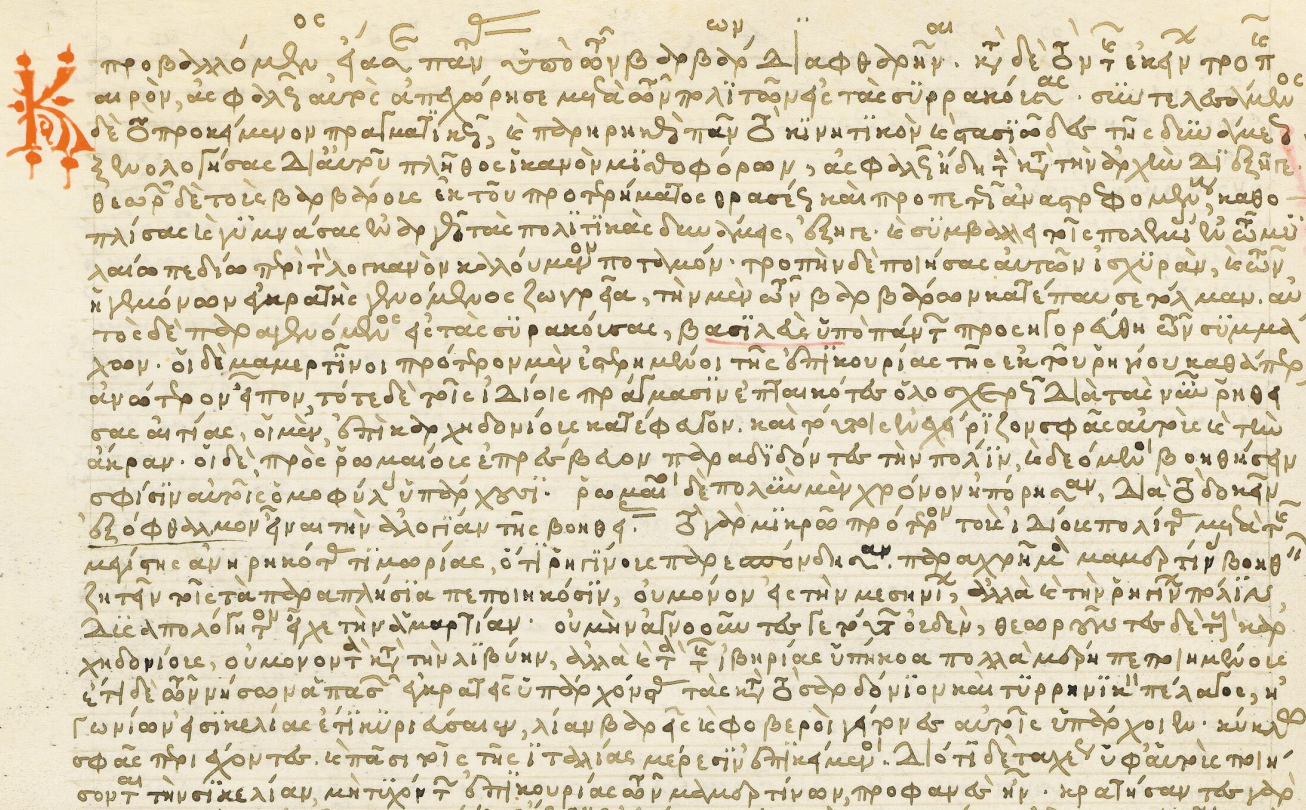 προβαλλόμενος εἴασε πάντας ὑπὸ τῶν βαρβάρων διαφθαρῆναι. κατὰ δὲ τὸν τῆς ἐκείνων τροπῆς
καιρὸν, ἀσφαλῶς αὐτὸς ἀπεχώρησε μετὰ τῶν πολιτῶν εἰς τὰς συρρακούσας. συντελεσάμενος
δὲ τὸ προκείμενον πραγματικῶς, καὶ παρῃρηκὼς πᾶν τὸ κινητικὸν καὶ στασιῶδες τῆς δυνάμεως
ξενολογήσας δι' αὐτοῦ πλῆθος ἱκανὸν μισθοφόρων, ἀσφαλῶς ἤδη τὰ κατὰ τὴν ἀρχὴν διεξῆγε.
θεωρῶν δὲ τοὺς βαρβάρους ἐκ τοῦ προτερήματος θρασέως καὶ προπετῶς ἀναστρεφομένους, καθο
πλίσας καὶ γυμνάσας ἐνεργῶς τὰς πολιτικὰς δυνάμεις, ἐξῆγε. καὶ συμβάλλει τοῖς πολεμίοις ἐν τῶ μυ
λαίω πεδίω περὶ τὸν λογκανὸν καλούμενον ποταμόν. τροπὴν δὲ ποιήσας αὐτῶν ἰσχυρὰν, καὶ τῶν
ἡγεμόνων ἐγκρατὴς γενόμενος ζωγρεία, τὴν μὲν τῶν βαρβάρων κατέπαυσε τόλμαν. αὐ
τὸς δὲ παραγενόμενος εἰς τὰς συρακούσας, βασιλεὺς ὑπὸ πάντων προσηγορεύθη τῶν συμμά
χων. οἱ δὲ μαμερτῖνοι πρότερον μὲν ἐστερημένοι τῆς ἐπικουρίας τῆς ἐκ τοῦ ῥηγίου καθάπερ
ἀνώτερον εἶπον, τότε δὲ τοῖς ἰδίοις πράγμασιν ἐπταικότες ὁλοσχερῶς διὰ τὰς νῦν ῥηθεί
σας αἰτίας, οἱ μὲν, ἐπὶ καρχηδονίους κατέφευγον. καὶ τούτοις ἐνεχείριζον σφᾶς αὐτοὺς καὶ τὴν
ἄκραν. οἱ δὲ, πρὸς ῥωμαίους ἐπρέσβευον παραδιδόντες τὴν πόλιν, καὶ δεόμενοι βοηθήσειν
σφίσιν αὐτοῖς ὁμοφύλοις ὑπάρχουσι. ῥωμαῖοι δὲ πολὺν μὲν χρόνον ἠπόρησαν, διὰ τὸ δοκεῖν
ἐξόφθαλμον εἶναι τὴν ἀλογίαν τῆς βοηθείας. τὸ γὰρ μικρῶ πρότερον τοὺς ἰδίους πολίτας μετὰ τῆς
μεγίστης ἀνῃρηκότας τιμωρίας, ὅτι ῥηγίνους παρεσπόνδησαν. παραχρῆμα μαμερτίνοις βοηθεῖν
ζητεῖν τοῖς τὰ παραπλήσια πεποιηκόσιν, οὐ μόνον εἰς τὴν μεσήνην, ἀλλὰ καὶ τὴν ῥηγίνων πόλιν,
δυσαπολόγητον εἶχε τὴν ἁμαρτίαν. οὐ μὴν ἀγνοοῦντες γε τούτων οὐδὲν, θεωροῦντες δὲ τοὺς καρ
χηδονίους, οὐ μόνον τὰ κατὰ τὴν λιβύην, ἀλλὰ καὶ τὰ τῆς ἰβηρίας ὑπήκοα πολλὰ μέρη πεποιημένους
ἔτι δὲ τῶν νήσων ἁπασῶν ἐγκρατεῖς ὑπάρχοντας τὰς κατὰ τὸ σαρδόνιον καὶ τυρρηνικὸν πέλαγος, ἠ
γωνίων εἰ σικελίας ἔτι κυριεύσαιεν, λίαν βαρεῖς καὶ φοβεροὶ γείτονες αὐτοῖς ὑπάρχοιεν. κύκλω
σφᾶς περιέχοντες. καὶ πᾶσι τοῖς τῆς ἰταλίας μέρεσιν ἐπικείμενοι. διότι δὲ ταχέως ὑφ' αὑτοὺς ποιή
σονται τὴν σικελίαν, μὴ τυχόντων ἐπικουρίας τῶν μαμερτίνων, προφανὲς ἦν. κρατήσαντες γὰρ